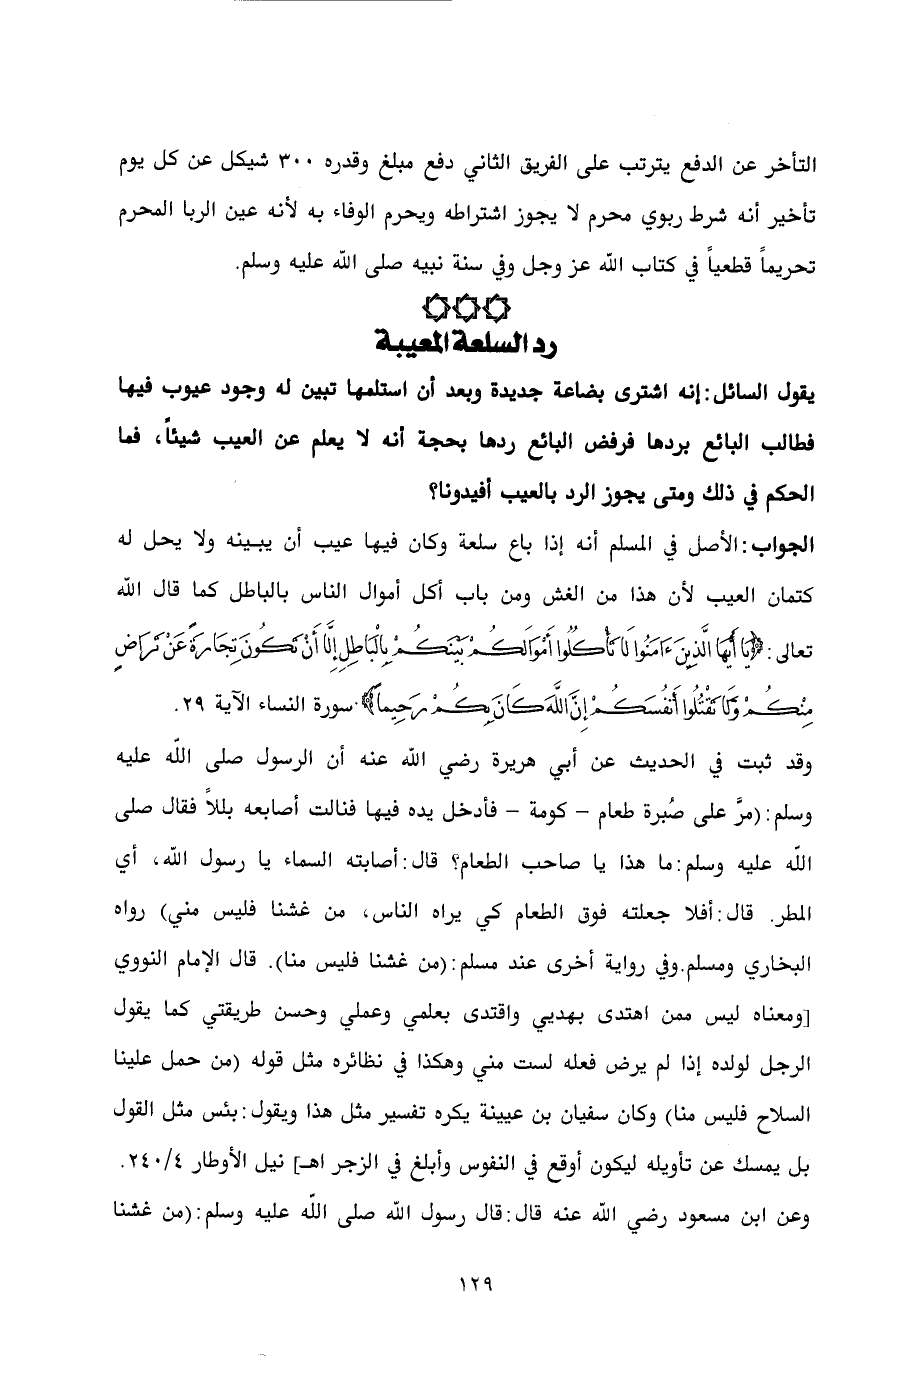 التأخر عن الدفع يترتب على الفريق الثاني دفع مبلغ وقدره ٣٠٠ شيكل عن كل يوم
تأخير أنه شرط ربوي محرم لا يجوز اشتراطه ويحرم الوفاء به لأنه عين الربا المحرم
تحريماً قطعياً في كتاب الله عز وجل وفي سنة نبيه صلى الله عليه وسلم.
رد السلعة المعيبة
يقول السائل: إنه اشترى بضاعة جديدة وبعد أن استلمها تبين له وجود عيوب فيها
فطالب البائع بردها فرفض البائع ردها بحجة أنه لا يعلم عن العيب شيئاً، فما
الحكم في ذلك ومتى يجوز الرد بالعيب أفيدونا؟
الجواب: الأصل في المسلم أنه إذا باع سلعة وكان فيها عيب أن يبينه ولا يحل له
كتمان العيب لأن هذا من الغش ومن باب أكل أموال الناس بالباطل كما قال الله
تعالى: ﴿يَا أَيُّهَا الَّذِينَ ءَامَنُوا لَا تَأْكُلُوا أَمْوَالَكُمْ بَيْنَكُمْ بِالْبَاطِلِ إِلَّا أَنْ تَكُونَ تِجَارَةً عَنْ تَرَاضٍ
مِنْكُمْ وَلَا تَقْتُلُوا أَنْفُسَكُمْ إِنَّ اللَّهَ كَانَ بِكُمْ رَحِيماً﴾ سورة النساء الآية ٢٩.
وقد ثبت في الحديث عن أبي هريرة رضي الله عنه أن الرسول صلى الله عليه
وسلم: (مرَّ على صُبرة طعام – كومة – فأدخل يده فيها فنالت أصابعه بللاً فقال صلى
الله عليه وسلم: ما هذا يا صاحب الطعام؟ قال: أصابته السماء يا رسول الله، أي
المطر. قال: أفلا جعلته فوق الطعام كي يراه الناس، من غشنا فليس مني) رواه
البخاري ومسلم. وفي رواية أخرى عند مسلم: (من غشنا فليس منا). قال الإمام النووي
[ومعناه ليس ممن اهتدى بهديي واقتدى بعلمي وعملي وحسن طريقتي كما يقول
الرجل لولده إذا لم يرض فعله لست مني وهكذا في نظائره مثل قوله (من حمل علينا
السلاح فليس منا) وكان سفيان بن عيينة يكره تفسير مثل هذا ويقول: بئس مثل القول
بل يمسك عن تأويله ليكون أوقع في النفوس وأبلغ في الزجر اهـ] نيل الأوطار ٢٤٠/٤.
وعن ابن مسعود رضي الله عنه قال: قال رسول الله صلى الله عليه وسلم: (من غشنا
١٢٩